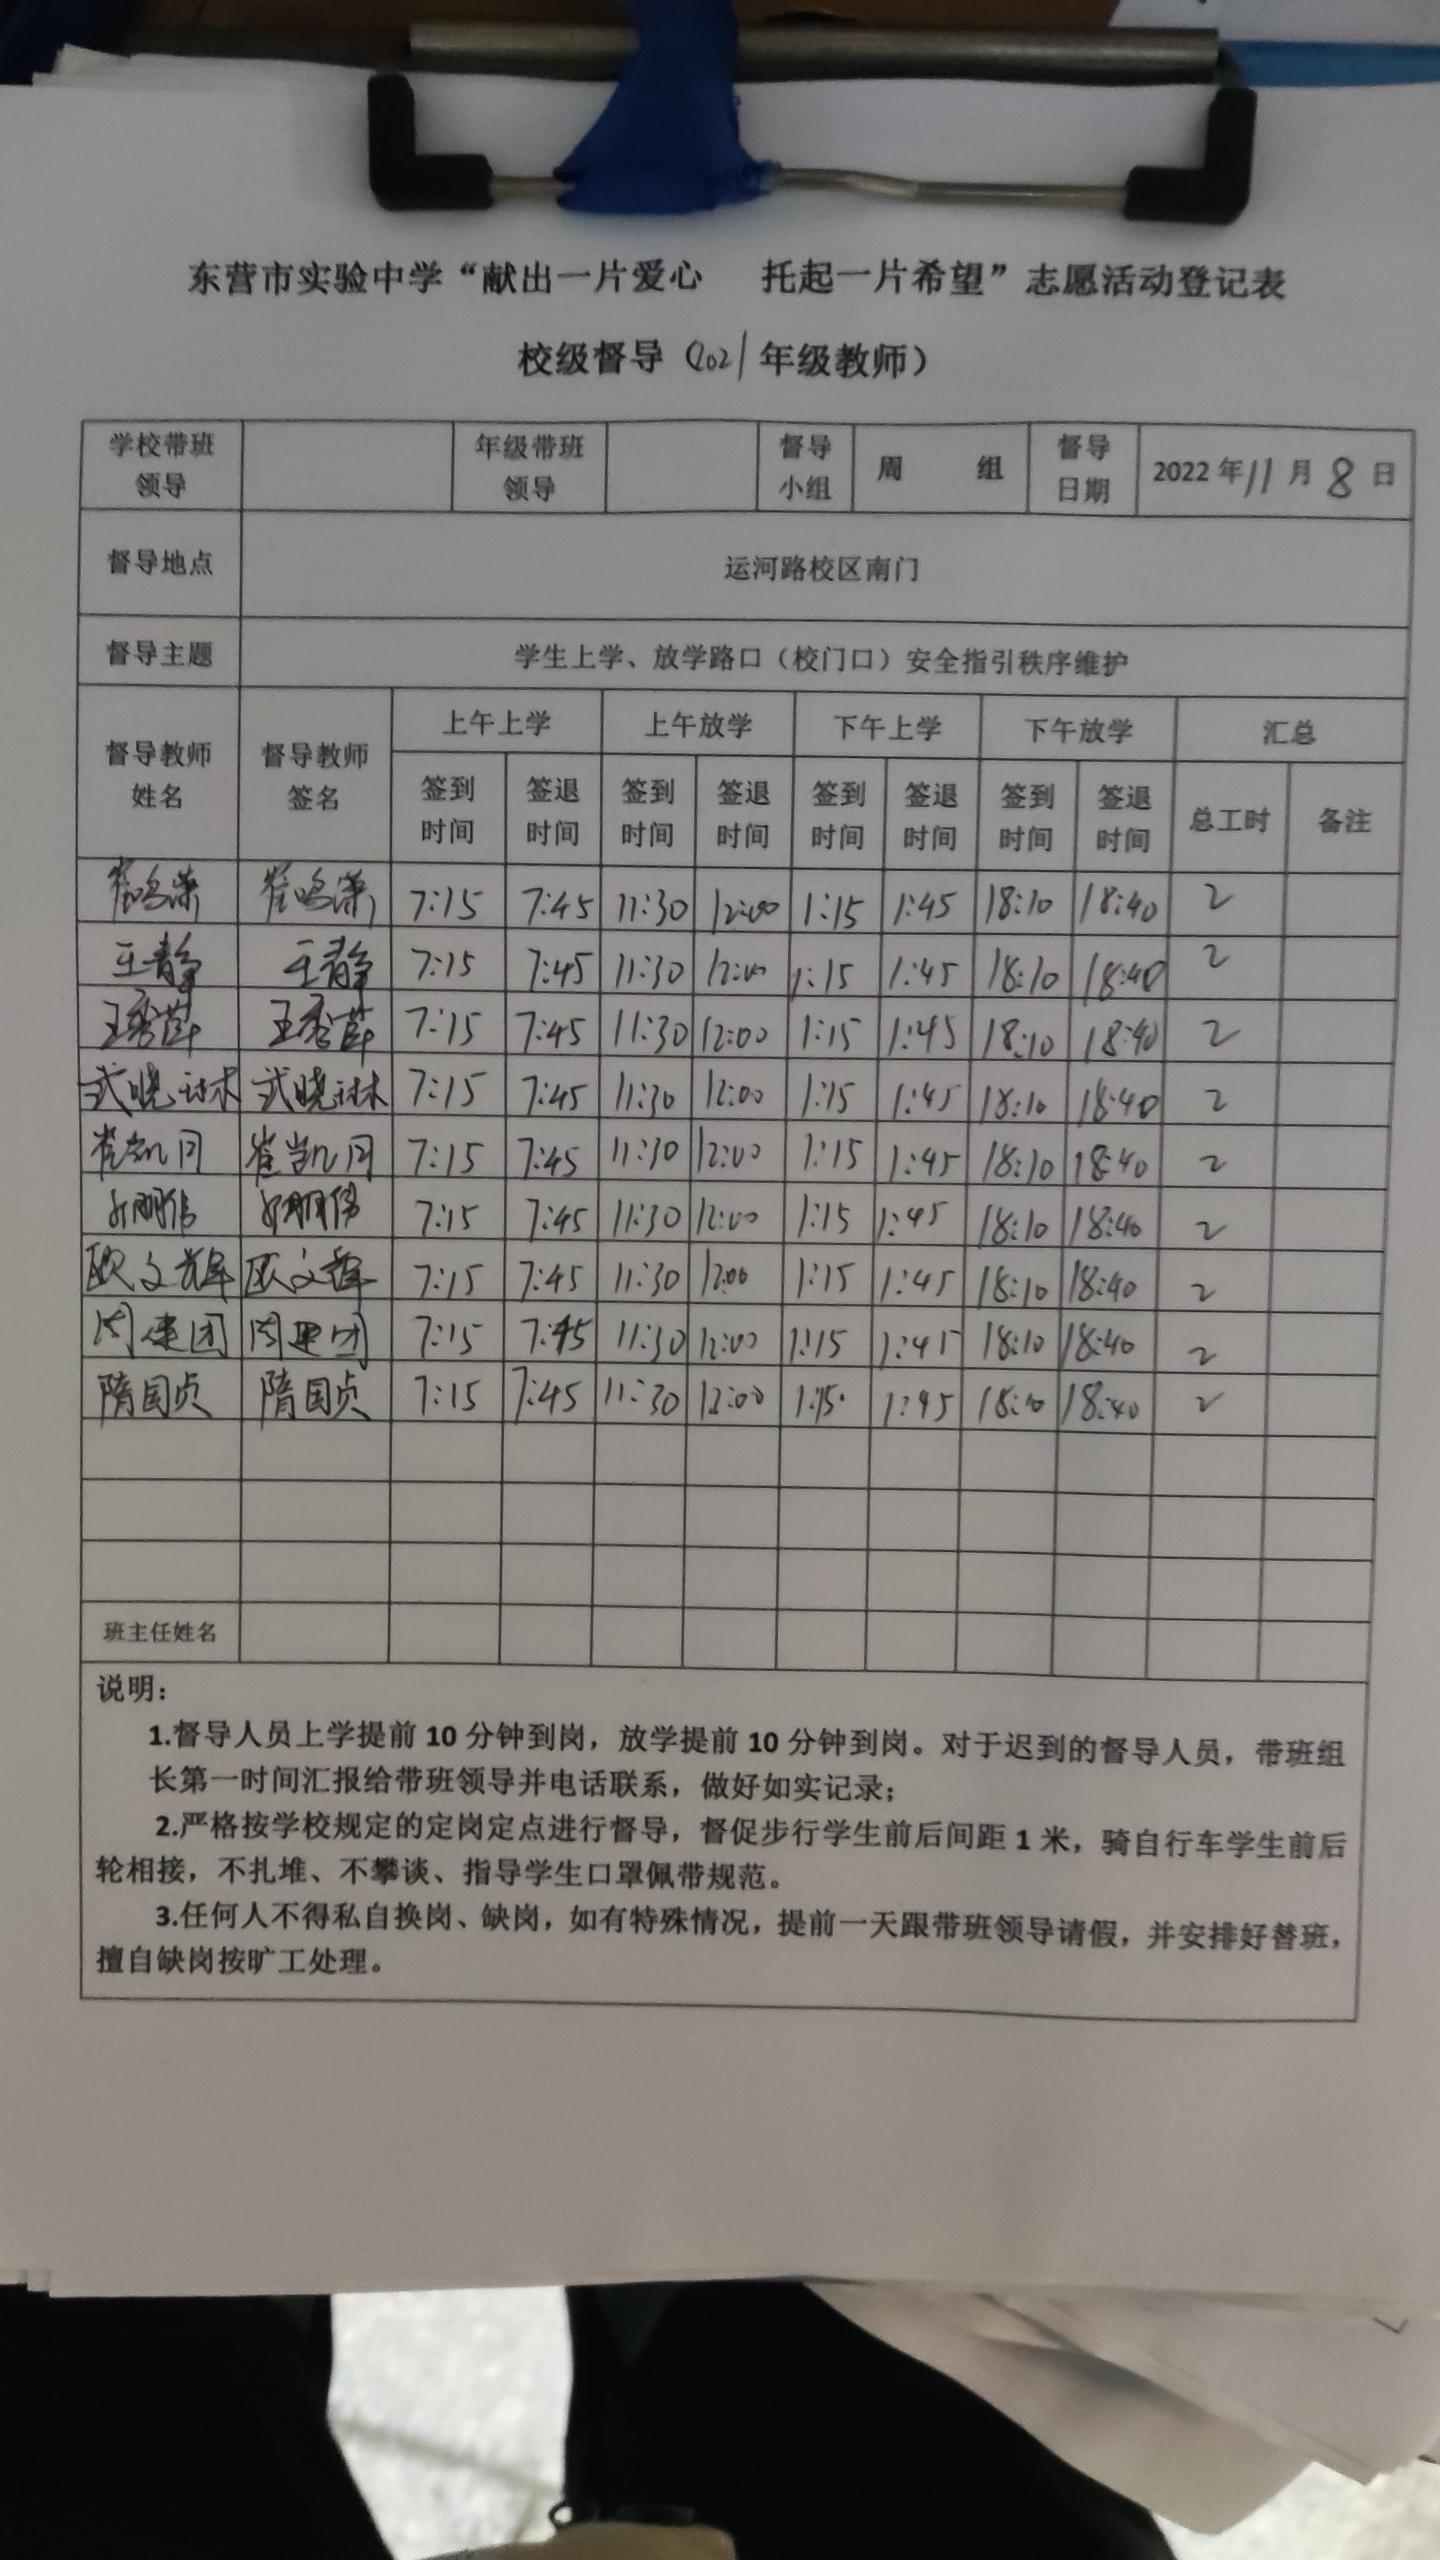 东营市实验中学“献出一片爱心 托起一片希望”志愿活动登记表
校级督导（2021年级教师）
学校带班领导 年级带班领导 督导小组 周 组 督导日期 2022年11月8日
督导地点 运河路校区南门
督导主题 学生上学、放学路口（校门口）安全指引秩序维护
督导教师姓名 督导教师签名 上午上学 上午放学 下午上学 下午放学 汇总
签到时间 签退时间 签到时间 签退时间 签到时间 签退时间 签到时间 签退时间 总工时 备注
崔鸣潇 崔鸣潇 7:15 7:45 11:30 12:00 1:15 1:45 18:10 18:40 2
王静 王静 7:15 7:45 11:30 12:00 1:15 1:45 18:10 18:40 2
王秀萍 王秀萍 7:15 7:45 11:30 12:00 1:15 1:45 18:10 18:40 2
武晓琳 武晓琳 7:15 7:45 11:30 12:00 1:15 1:45 18:10 18:40 2
崔凯同 崔凯同 7:15 7:45 11:30 12:00 1:15 1:45 18:10 18:40 2
7:15 7:45 11:30 12:00 1:15 1:45 18:10 18:40 2
欧文辉 欧文辉 7:15 7:45 11:30 12:00 1:15 1:45 18:10 18:40 2
闫建团 闫建团 7:15 7:45 11:30 12:00 1:15 1:45 18:10 18:40 2
隋国贞 隋国贞 7:15 7:45 11:30 12:00 1:15 1:45 18:10 18:40 2
班主任姓名
说明：
1.督导人员上学提前10分钟到岗，放学提前10分钟到岗。对于迟到的督导人员，带班组
长第一时间汇报给带班领导并电话联系，做好如实记录；
2.严格按学校规定的定岗定点进行督导，督促步行学生前后间距1米，骑自行车学生前后
轮相接，不扎堆、不攀谈、指导学生口罩佩带规范。
3.任何人不得私自换岗、缺岗，如有特殊情况，提前一天跟带班领导请假，并安排好替班，
擅自缺岗按旷工处理。